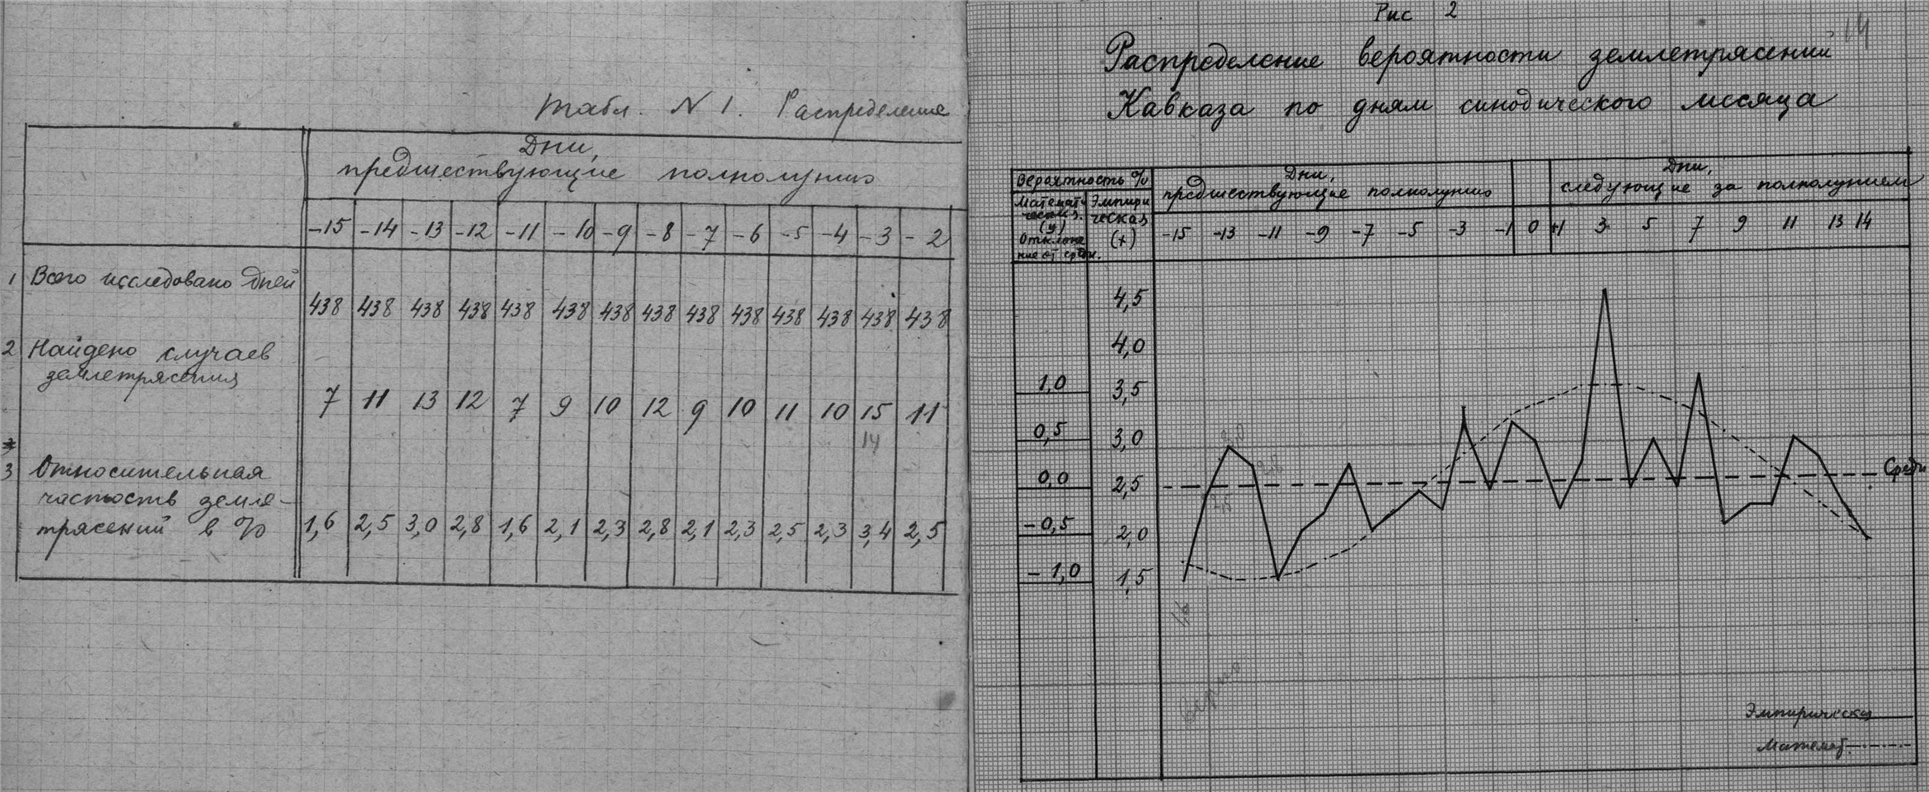 Табл. N 1. Распределение
Дни,
предшествующие полнолунию
-15 -14 -13 -12 -11 -10 -9 -8 -7 -6 -5 -4 -3 -2
1 Всего исследовано дней
438 438 438 438 438 438 438 438 438 438 438 438 438 438
2 Найдено случаев
землетрясения
7 11 13 12 7 9 10 12 9 10 11 10 15 11
14
3 Относительная
частость земле-
трясений в %
1,6 2,5 3,0 2,8 1,6 2,1 2,3 2,8 2,1 2,3 2,5 2,3 3,4 2,5
Рис 2
14
Распределение вероятности землетрясений
Кавказа по дням синодического месяца
Вероятность %
Математи
ческая.
(у)
Отклоне
ние от средн.
Эмпири
ческая
(+)
Дни,
предшествующие полнолунию
-15 -13 -11 -9 -7 -5 -3 -1 0
Дни,
следующие за полнолунием
+1 3 5 7 9 11 13 14
1,0
0,5
0,0
-0,5
-1,0
4,5
4,0
3,5
3,0
2,5
2,0
1,5
3,0
2,8
1,6
Средн
верно
Эмпирическая
Математ.